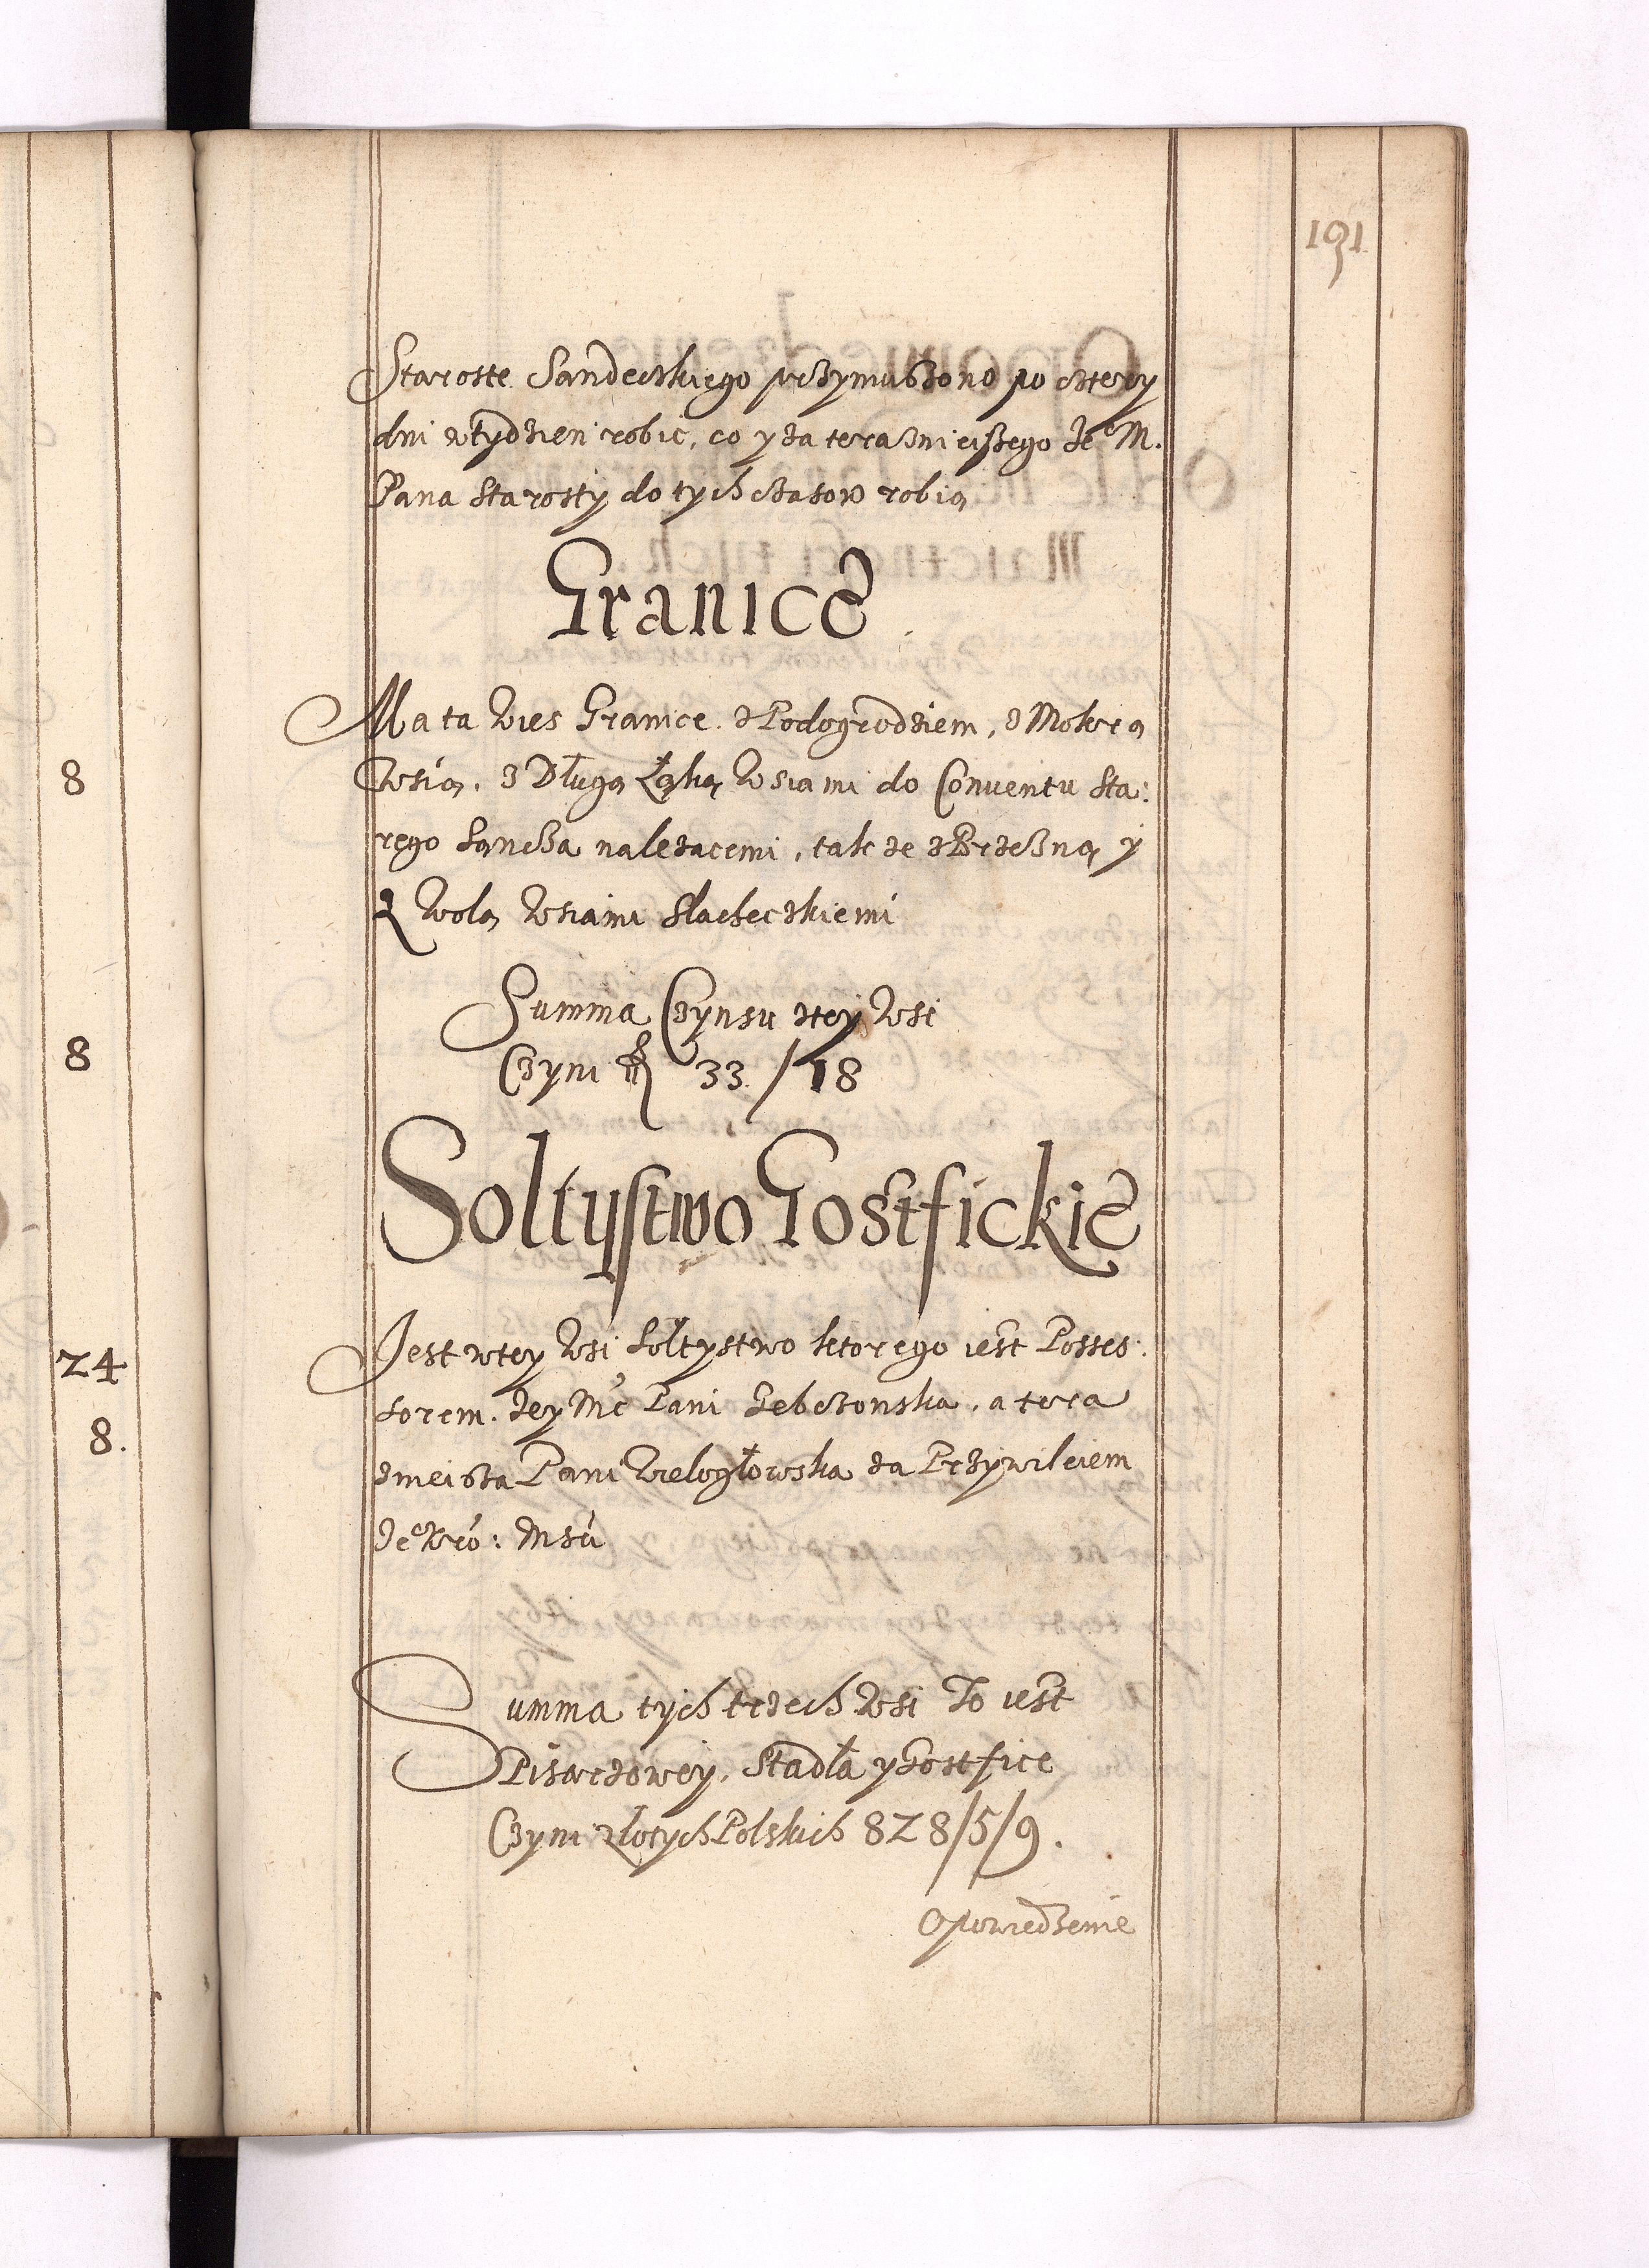 191
Staroste Sandeczkiego przymuszono po cztery
dni wtydzien robic, co y za terazniejszego Je° M.
Pana Starosty do tych czasow robią
Granice
Ma ta Wies Granice. z Podogrodziem, z Mokrą
Wsią, z Długą Łąką Wsiami do Conuentu Sta:
rego Sącza nalezacemi, takze z Brzezną y
z Wolą Wsiami Slacheczkiemi
Summa Czynsu ztey Wsi
Czyni fl 33 / 18
Soltystwo Gostfickie
Jest wtey Wsi Sołtystwo ktorego iest Posses:
sorem. Jey Mć Pani Gebczonska, a tera
zmeisza Pani Wielogłowska za Przywileiem
Je° Kró: Msci
Summa tych trzech Wsi To iest
Pisarzowey, Stadła y Gostfice
Czyni złotych Polskich 828/5/9.
Opowiedzenie
8
8
24
8.